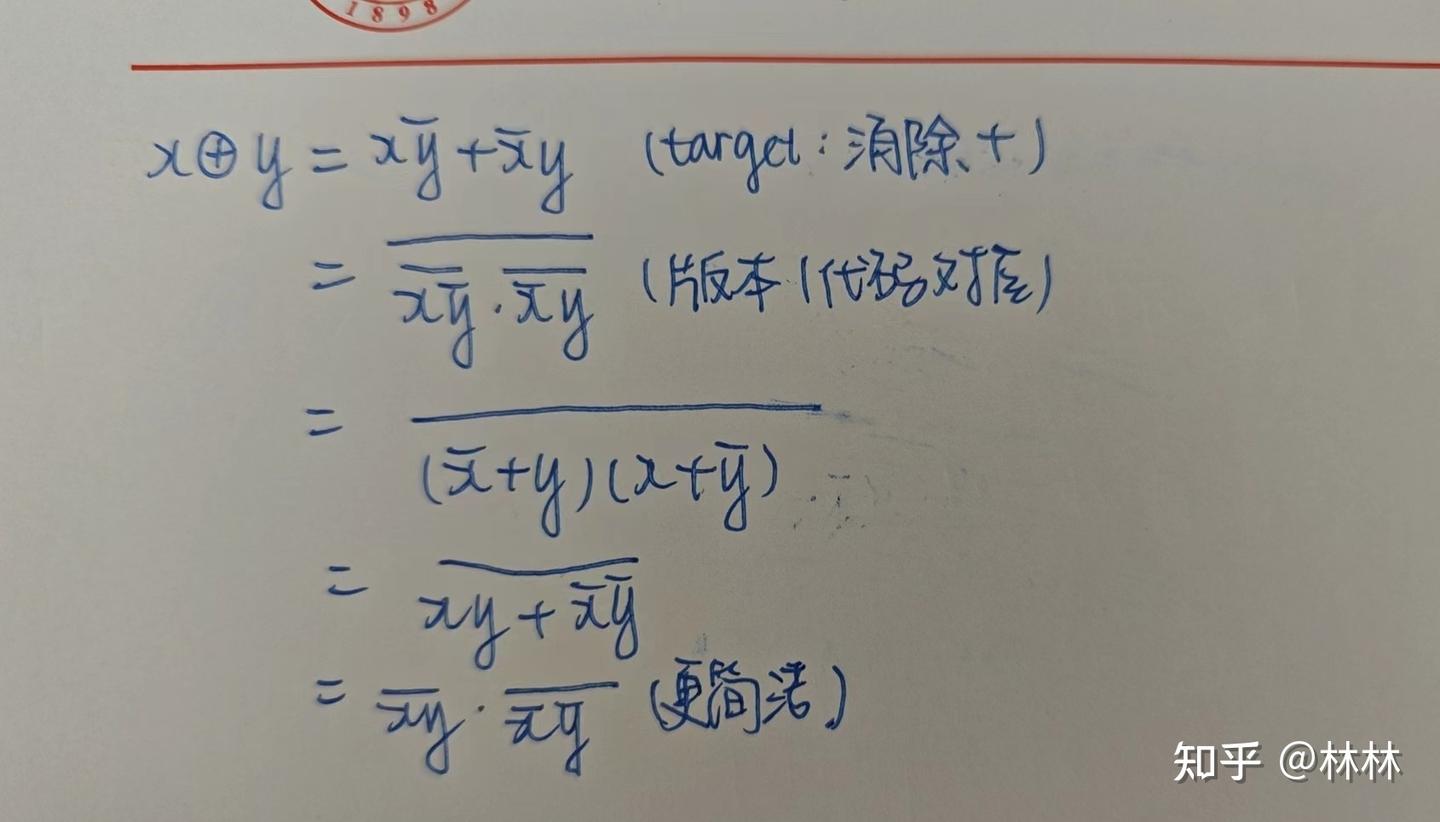 1898
x⊕y = xy̅ + x̅y (target: 消除+)
= \overline{\overline{x\overline{y}} · \overline{\overline{x}y}} (版本1代码对应)
= \overline{(\overline{x}+y)(x+\overline{y})}
= \overline{xy + \overline{x}\,\overline{y}}
= \overline{xy} · \overline{\overline{x}\,\overline{y}} (更简洁)
知乎 @林林